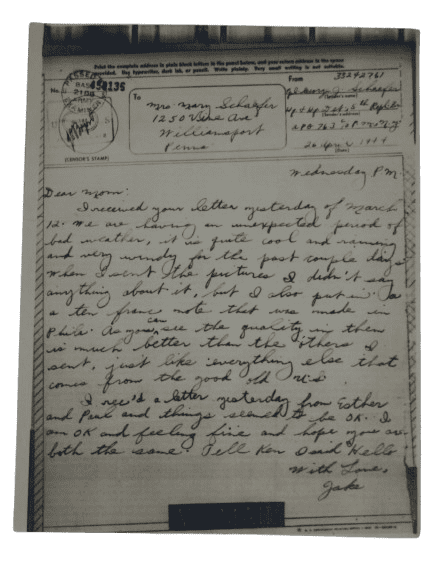 Print the complete address in plain block letters in the panel below, and your return address in the space
provided. Use typewriter, dark ink, or pencil. Write plainly. Very small writing is not suitable.
No.
To
Mrs Mary Schaefer
1250 Vine Ave
Williamsport
Penna
From
33242761
26 1944
(CENSOR'S STAMP)
Wednesday P.M.
Dear Mom:
I received your letter yesterday of March
12. We are having an unexpected period of
bad weather, it is quite cool and raining
and very windy for the past couple days
When I sent the pictures I didn't say
anything about it, but I also put in a
a ten franc note that was made in
Phila. As you can see the quality in them
is much better than the others I
sent, just like everything else that
comes from the good old U.S.
I rec'd a letter yesterday from Esther
and Paul and things seemed to be OK. I
am OK and feeling fine and hope you are
both the same. Tell Ken I said Hello
With Love,
Jake